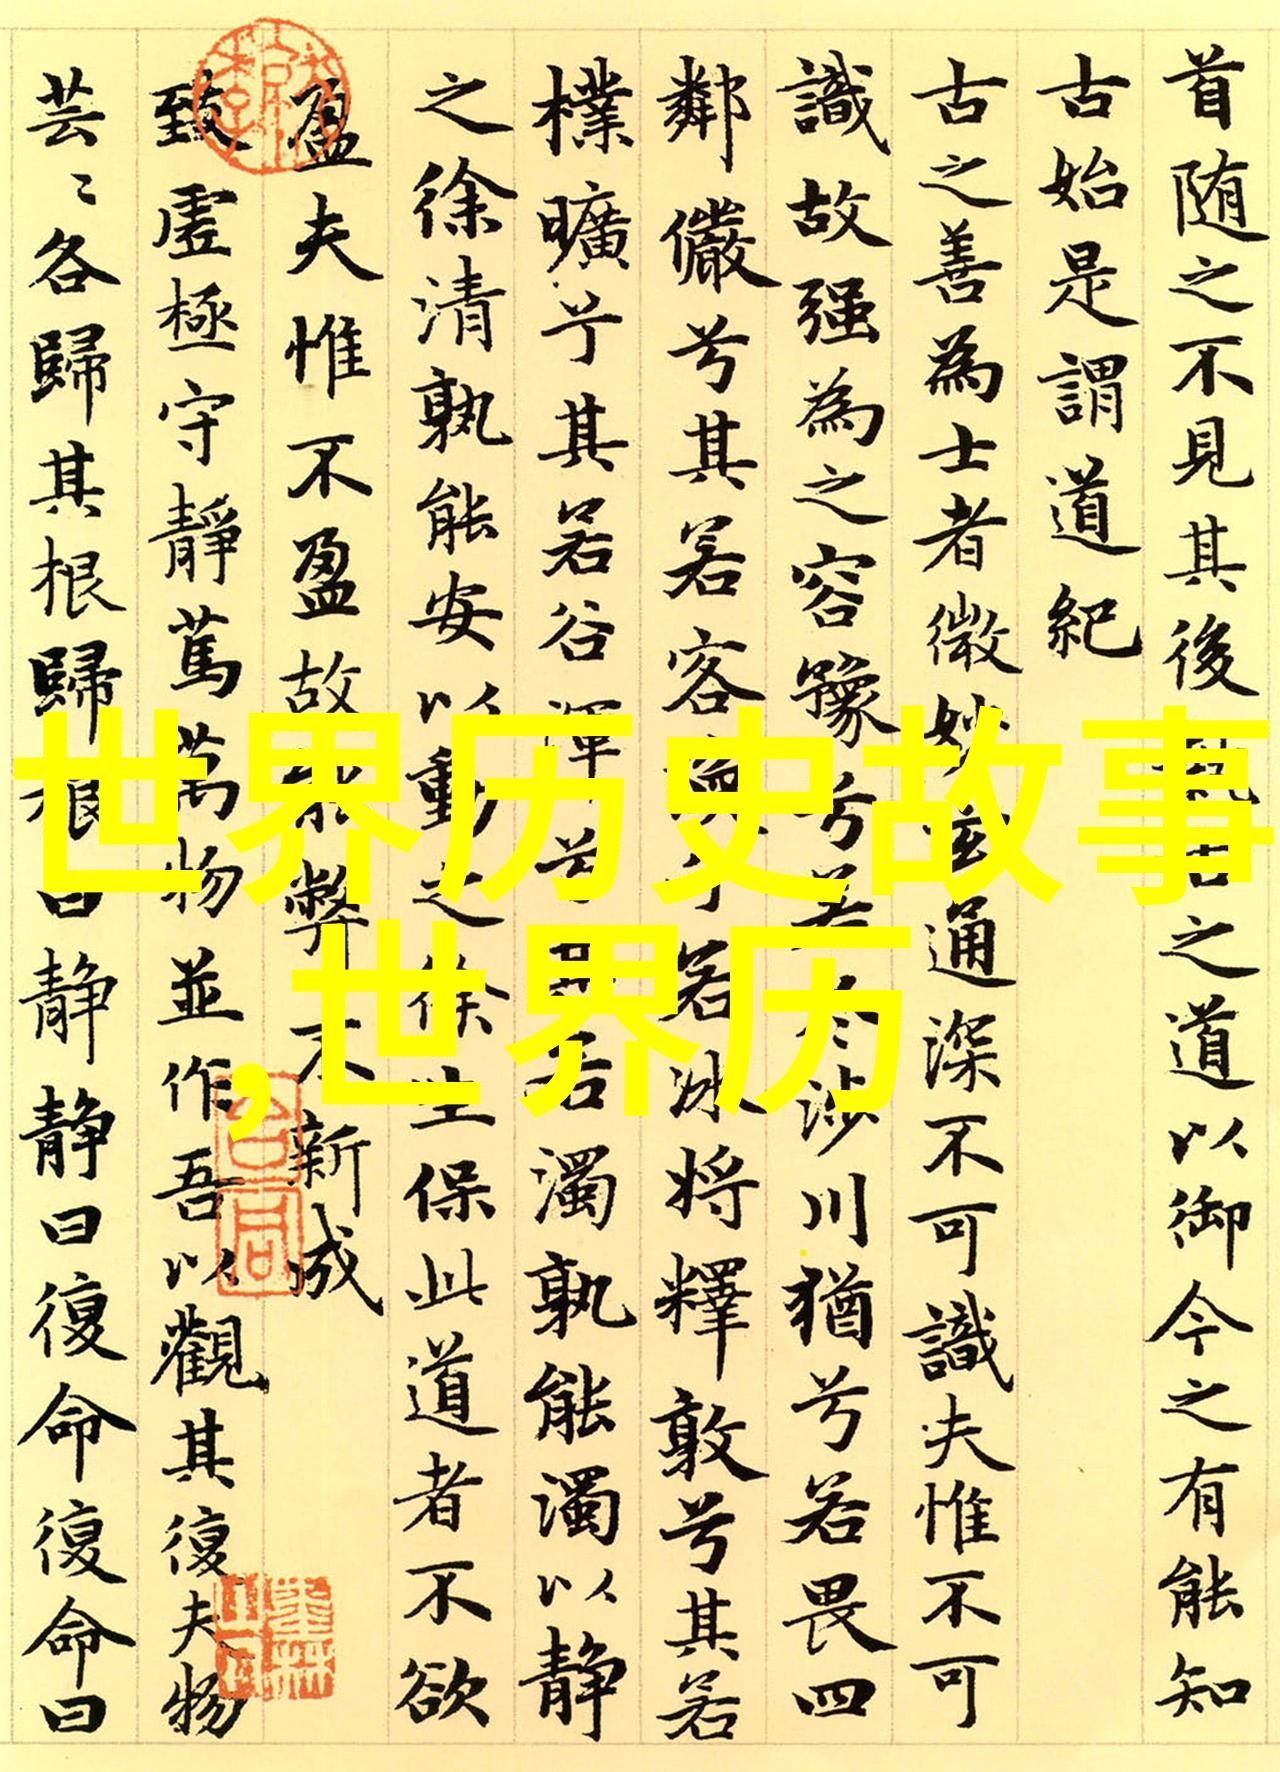 首随之不見其後執古之道以御今之有能知
古始是謂道紀
古之善為士者微妙玄通深不可識夫惟不可
識故强為之容豫兮若冬涉川猶兮若畏四
鄰儼兮其若客渙兮若冰将釋敦兮其若
樸曠兮其若谷渾兮其若濁孰能濁以静
之徐清孰能安以動之徐生保此道者不欲
盈夫惟不盈故能弊不新成
致虚極守靜篤萬物並作吾以觀其復夫物
芸〻各歸其根歸根曰静静曰復命復命曰
世界历史故事
,世界历